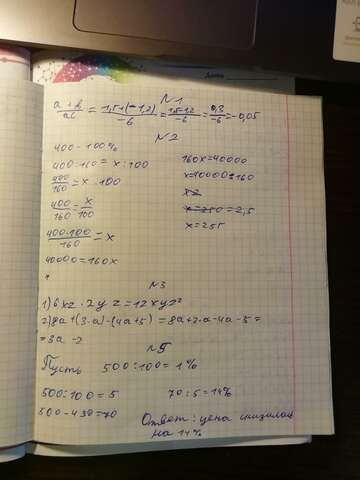 N1
a+b/ac = 1,5+(-1,2)/-6 = 1,5-1,2/-6 = 0,3/-6 = -0,05
N2
400 - 100%
400-160 = x:100
400/160 = x:100
400/160 = x/100
400·100/160 = x
40000 = 160x
160x = 40000
x = 40000:160
x = 250 = 2,5
x = 255
N3
1) 6xz · 2yz = 12xyz²
2) 8a+(3-a)-(4a+5) = 8a+3-a-4a-5 =
= 3a-2
N5
Пусть 500:100 = 1%
500:100 = 5
70:5 = 14%
500-430 = 70
Ответ: цена снизилась
на 14%